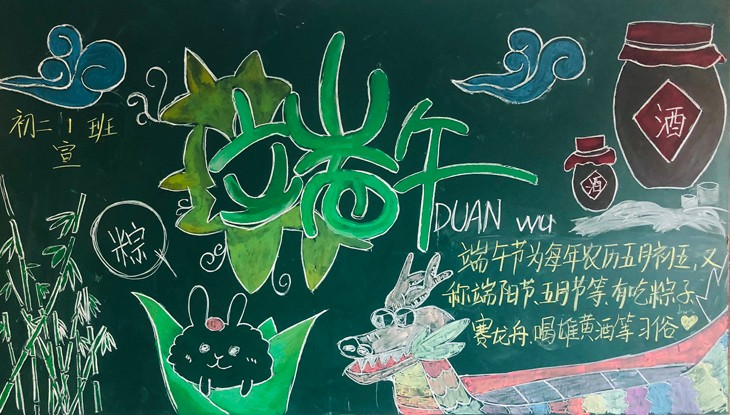 初二1班
宣
端午
DUAN wu
粽
酒
酒
端午节为每年农历五月初五，又
称端阳节、五月节等，有吃粽子、
赛龙舟、喝雄黄酒等习俗